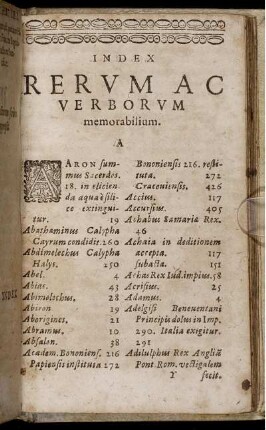 INDEX
RERVM AC
VERBORVM
memorabilium.
A
AARON sum-
mus Sacerdos.
18. in elicien-
da aqua è sili-
ce extingui-
tur. 19
Abathaminus Calypha
Cayrum condidit. 260
Abdimelechus Calypha
Halys. 250
Abel. 4
Abias. 43
Abimelechus. 28
Abiron 19
Aborigines. 21
Abramus. 10
Absalon. 38
Academ. Bononiens. 216
Papiensis instituta 272
Bononiensis 216. resti-
tuta. 272
Cracoviensis. 426
Accius. 117
Accursius. 405
Achabus Samariæ Rex.
46
Achaia in deditionem
accepta. 117
subacta. 151
Achas Rex Iud. impius. 58
Acrisius. 25
Adamus. 4
Adelgisi Beneventani
Principis dolus in Imp.
290. Italia exigitur.
291
Adilulphus Rex Angliæ
Pont. Rom. vectigalem
Y fecit.